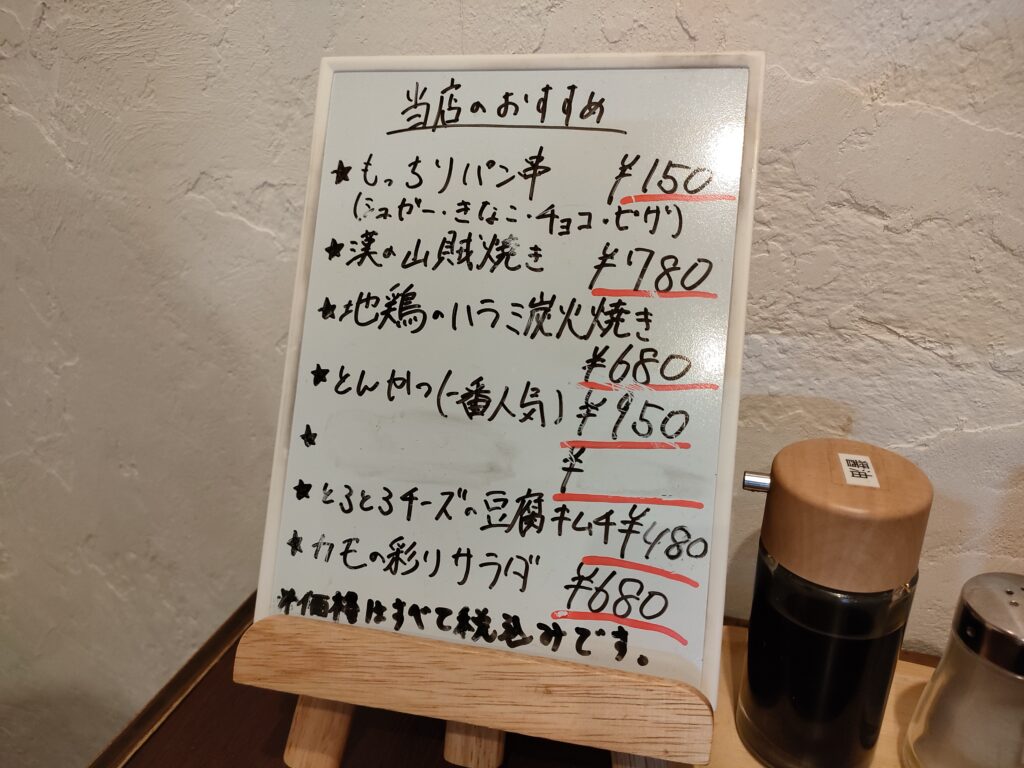 当店のおすすめ
★もっちりパン串 ¥150
(シュガー・きなこ・チョコ・ピザ)
★漢の山賊焼き ¥780
★地鶏のハラミ炭火焼き
¥680
★とんかつ(一番人気) ¥950
★ ¥
★とろとろチーズの豆腐キムチ ¥480
★カモの彩りサラダ ¥680
※価格はすべて税込みです。